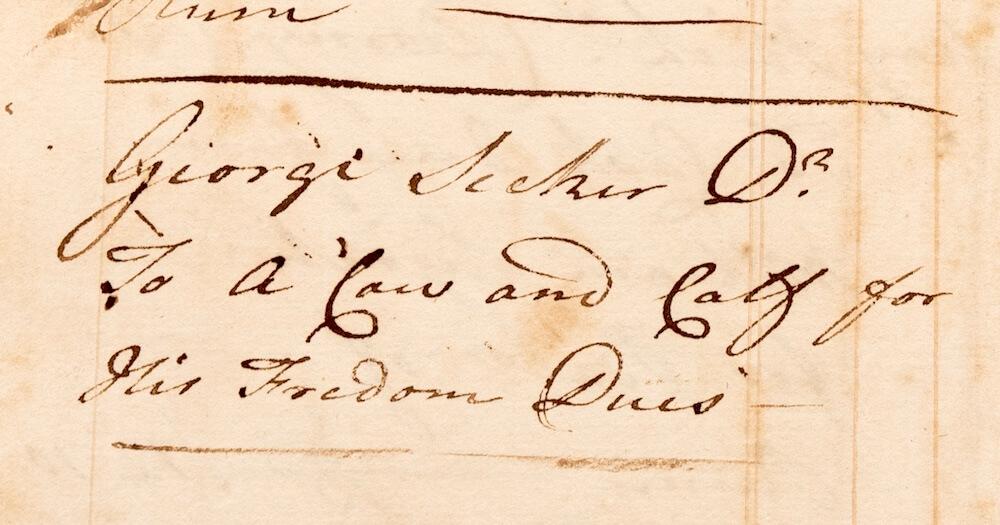 Rum
George Secker Dr.
To A Cow and Calf for
His Fredom Dues